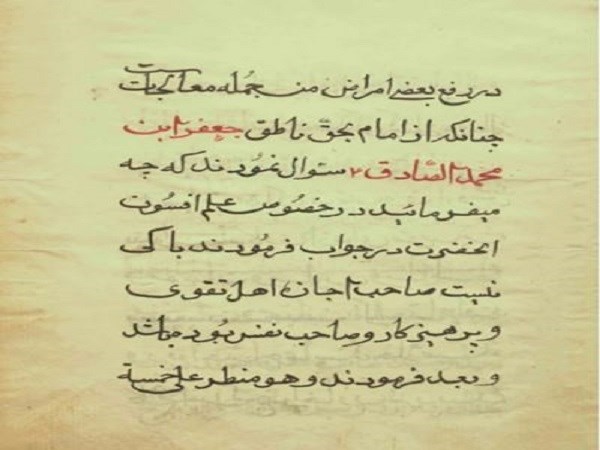 در دفع بعضی امراض من جمله معالجات است
چنانکه از امام بحق ناطق جعفر ابن
محمد الصّادق ۴ سئوال نمودند که چه
میفرمائید در خصوص علم افسون
انحضرت در جواب فرمودند باکی
نسیت صاحب اجازه اهل تقوی
و پرهیزکار و صاحب نفس بوده باشد
و بعد فرمودند و هو منطر علی خمسة